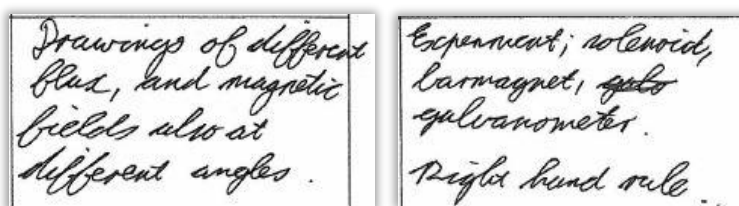 Drawings of different
flux, and magnetic
fields also at
different angles.
Experiment; solenoid,
barmagnet, galo
galvanometer.
Right hand rule